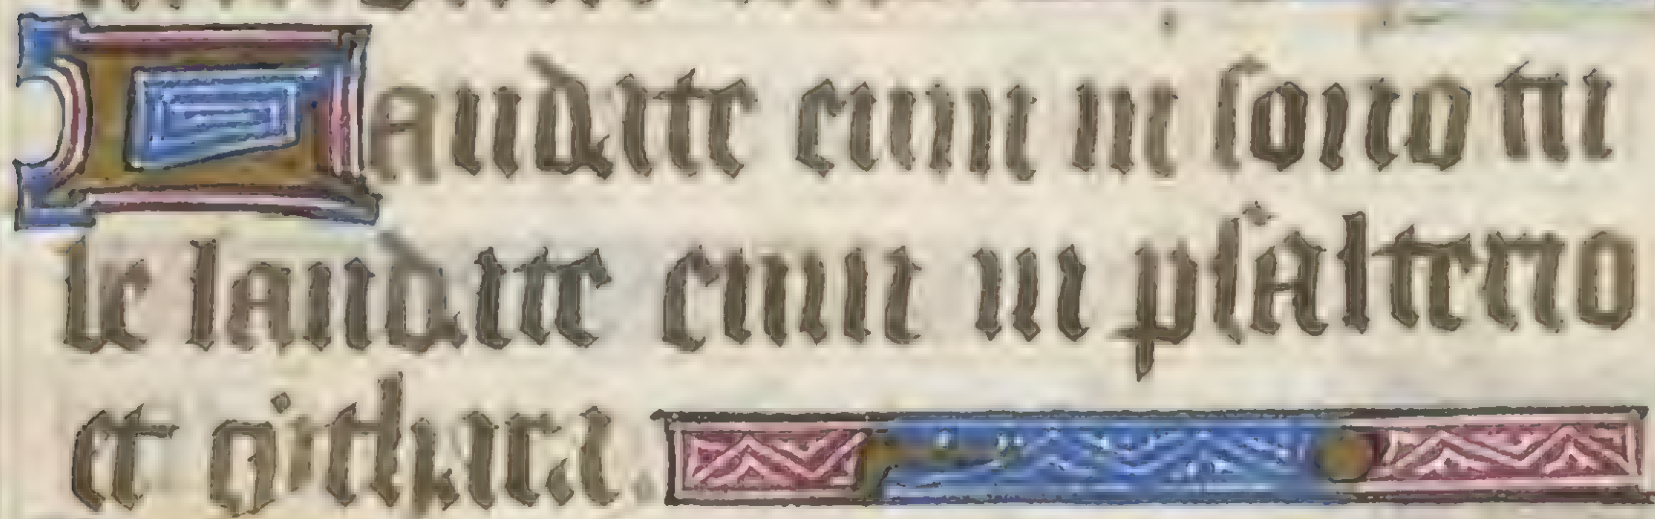 Laudate eum in sono tu
be laudate eum in psalterio
et cithara.